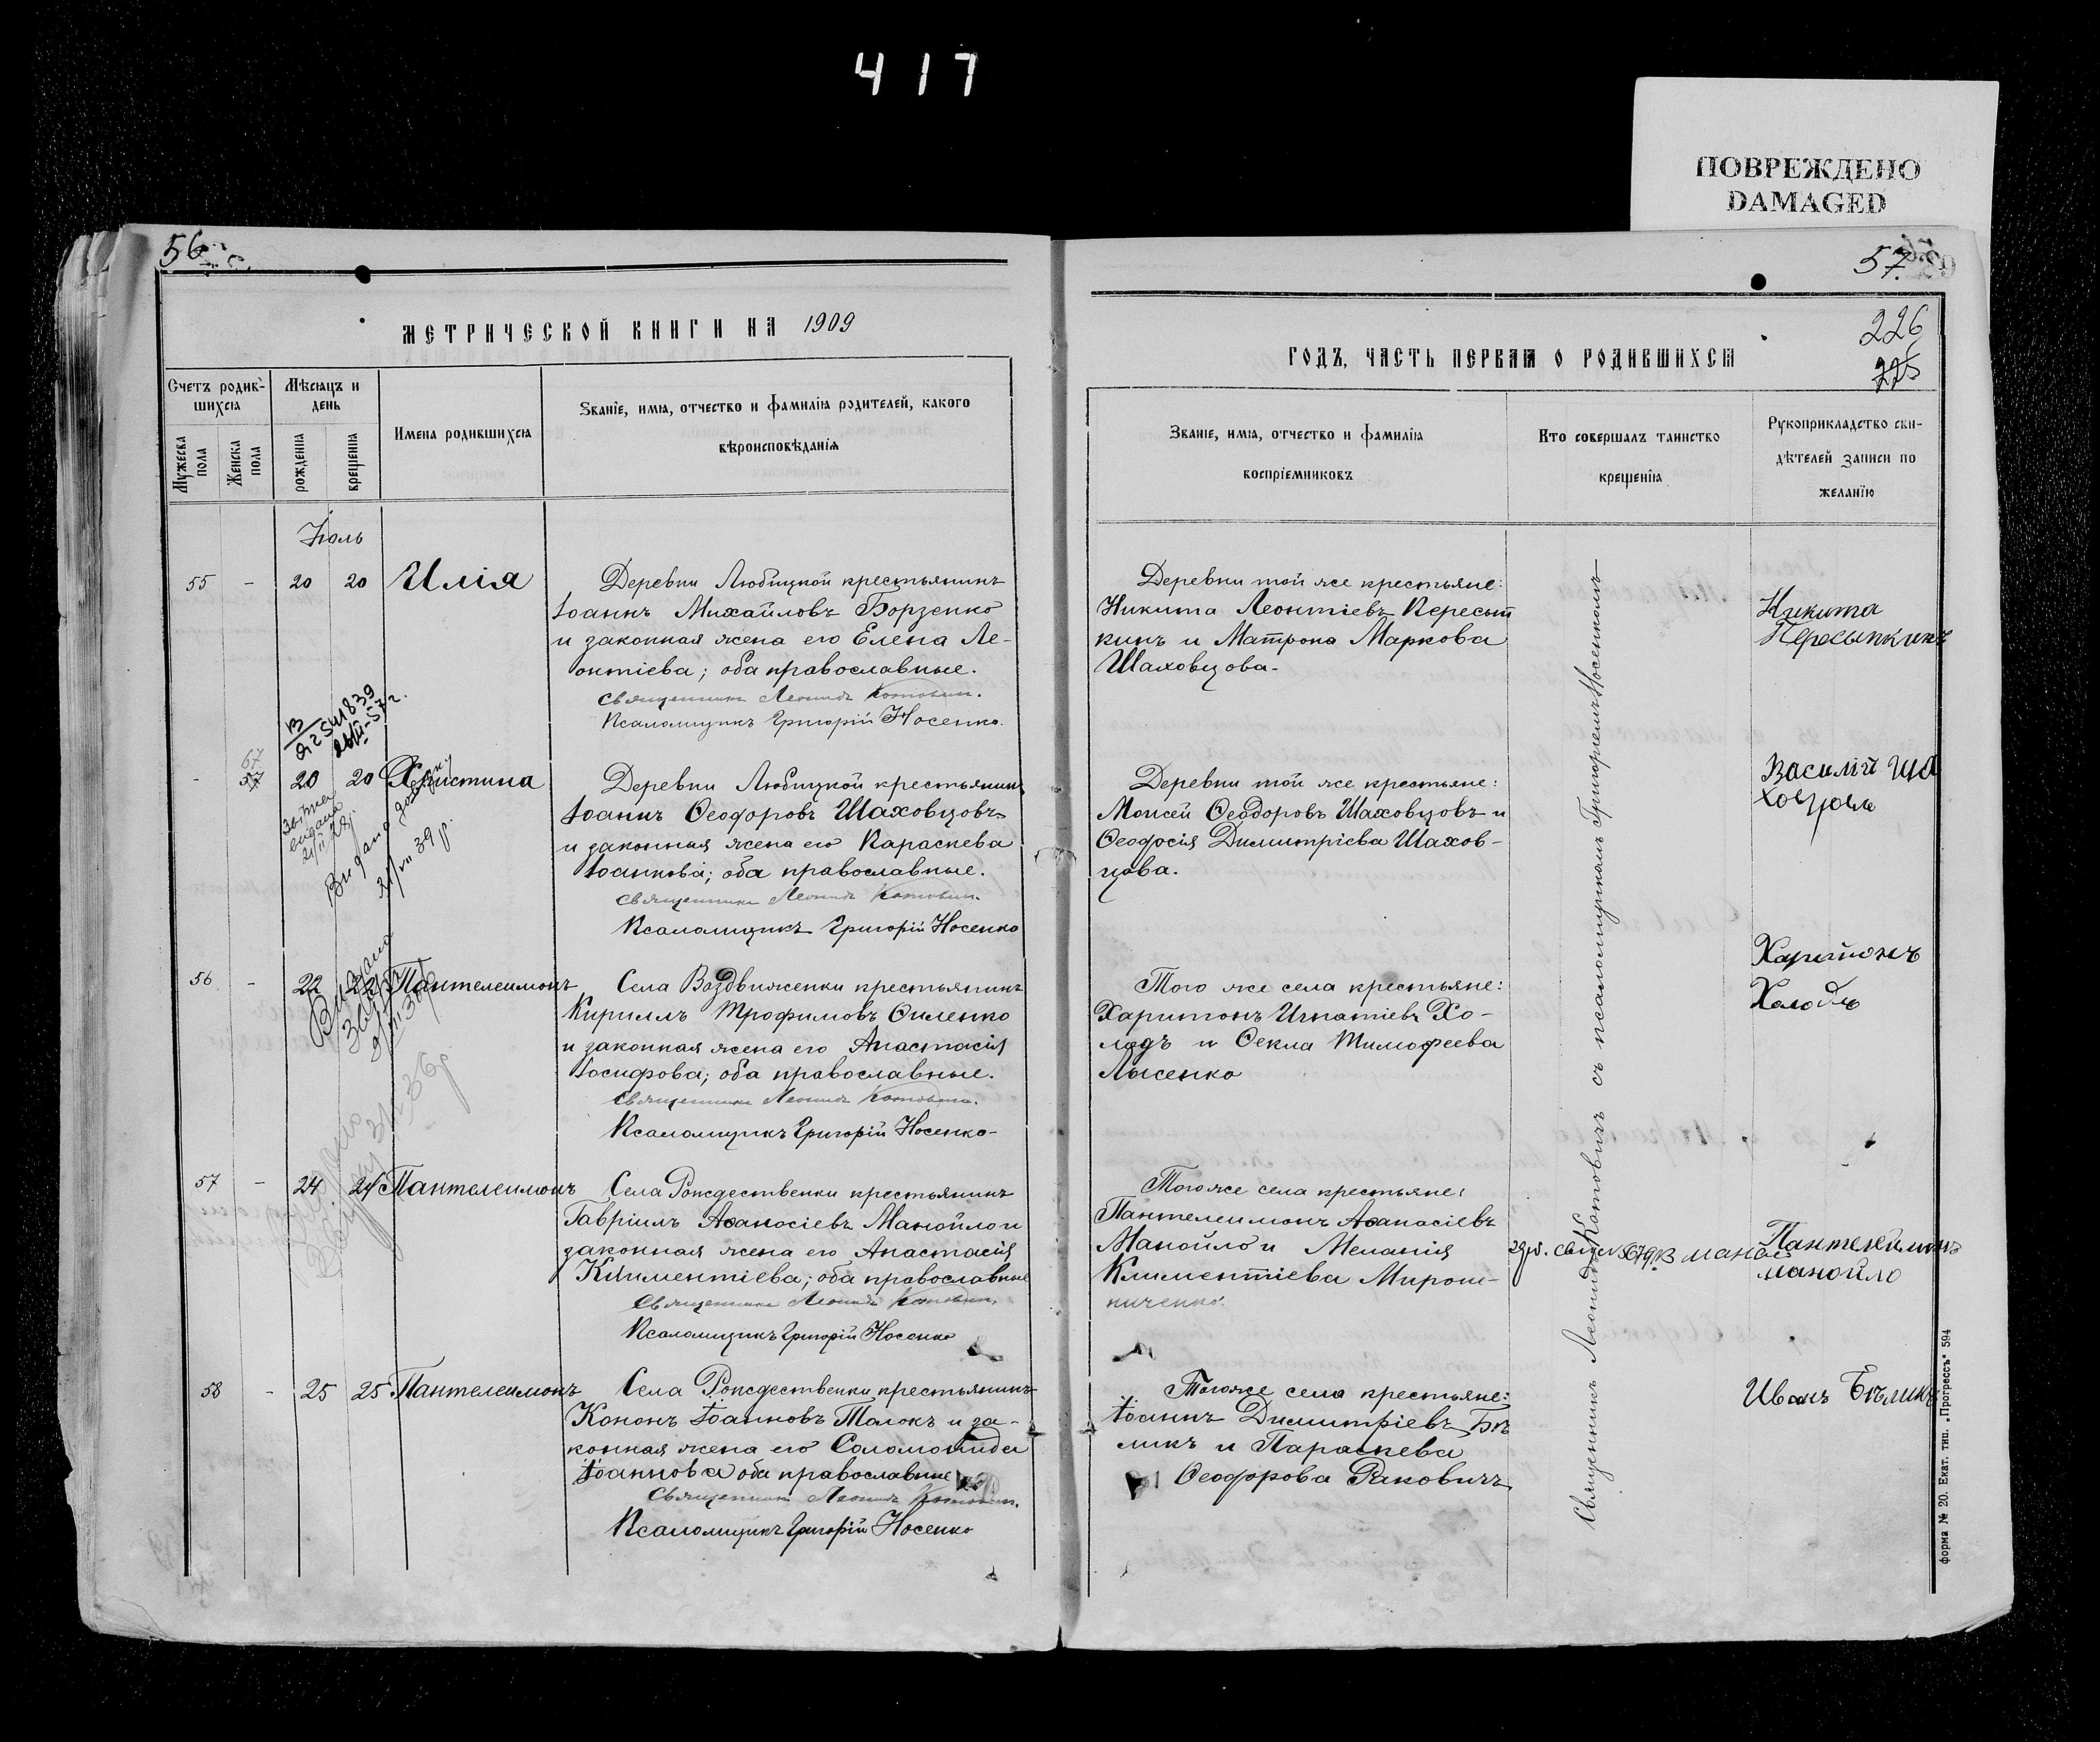 417
ПОВРЕЖДЕНО
DAMAGED
56
МЕТРИЧЕСКОЙ КНИГИ НА 1909
Счетъ родив-
шихся
Мѣсяцъ и
день
Мужеска
пола
Женска
пола
рожденія
крещенія
Имена родившихся
Званіе, имя, отчество и фамилія родителей, какого
вѣроисповѣданія
Іюль
55 - 20 20 Илія
Деревни Любицкой крестьянинъ
Іоаннъ Михайловъ Борзенко
и законная жена его Елена Ле-
онтіева; оба православные.
Священникъ Леонидъ Котовичъ.
Псаломщикъ Григорій Носенко.
67
- 57 20 20 Христина
Деревни Любицкой крестьянинъ
Іоаннъ Ѳеодоровъ Шаховцовъ
и законная жена его Параскева
Іоаннова; оба православные.
Священникъ Леонидъ Котовичъ.
Псаломщикъ Григорій Носенко
56 - 22 22 Пантелеимонъ
Села Воздвиженки крестьянинъ
Кириллъ Трофимовъ Ѳиленко
и законная жена его Анастасія
Іосифова; оба православные.
Священникъ Леонидъ Котовичъ.
Псаломщикъ Григорій Носенко
57 - 24 24 Пантелеимонъ
Села Рождественки крестьянинъ
Гавріилъ Аѳанасіевъ Манойло и
законная жена его Анастасія
Климентіева; оба православные
Священникъ Леонидъ Котовичъ.
Псаломщикъ Григорій Носенко
58 - 25 25 Пантелеимонъ
Села Рождественки крестьянинъ
Кононъ Іоанновъ Толокъ и за-
конная жена его Соломонида
Іоаннова оба православные
Священникъ Леонидъ Котовичъ.
Псаломщикъ Григорій Носенко
57.
226
225
ГОДЪ, ЧАСТЬ ПЕРВАЯ О РОДИВШИХСЯ
Званіе, имя, отчество и фамилія
воспріемниковъ
Кто совершалъ таинство
крещенія
Рукоприкладство сви-
дѣтелей записи по
желанію
Деревни той же крестьяне:
Никита Леонтіевъ Пересып
кинъ и Матрона Маркова
Шаховцова.
Никита
Пересыпкинъ
Деревни той же крестьяне:
Моисей Ѳеодоровъ Шаховцовъ и
Ѳеодосія Димитріева Шахов-
цова.
Василій Ша
Того же села крестьяне:
Харитонъ Игнатіевъ Хо-
лодъ и Ѳекла Тимофеева
Лысенко
Харитонъ
Холодъ
Того же села крестьяне:
Пантелеимонъ Аѳанасіевъ
Манойло и Меланія
Климентіева Мирош-
ниченко.
Пантелеймонъ
манойло
Того же села крестьяне:
Іоаннъ Димитріевъ Бѣ
ликъ и Параскева
Ѳеодорова Ракович
Иванъ Бѣликъ
Священникъ Леонидъ Котовичъ съ псаломщикомъ Григоріемъ Носенкомъ
форма № 20. Екат. тип. „Прогрессъ" 594